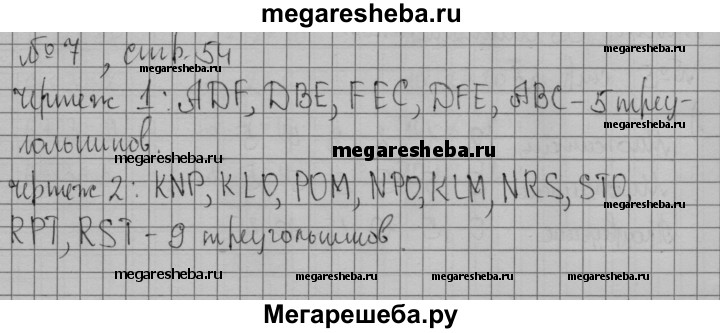 megaresheba.ru
№ 7, стр. 54
megaresheba.ru
megaresheba.ru
чертеж 1: ADF, DBE, FEC, DFE, ABC - 5 треу-
megaresheba.ru
гольников.
megaresheba.ru
megaresheba.ru
чертеж 2: KNP, KLO, POM, NPO, KLM, NRS, STO,
megaresheba.ru
RPT, RST - 9 треугольников.
megaresheba.ru megaresheba.ru megaresheba.ru
Мегарешеба.ру